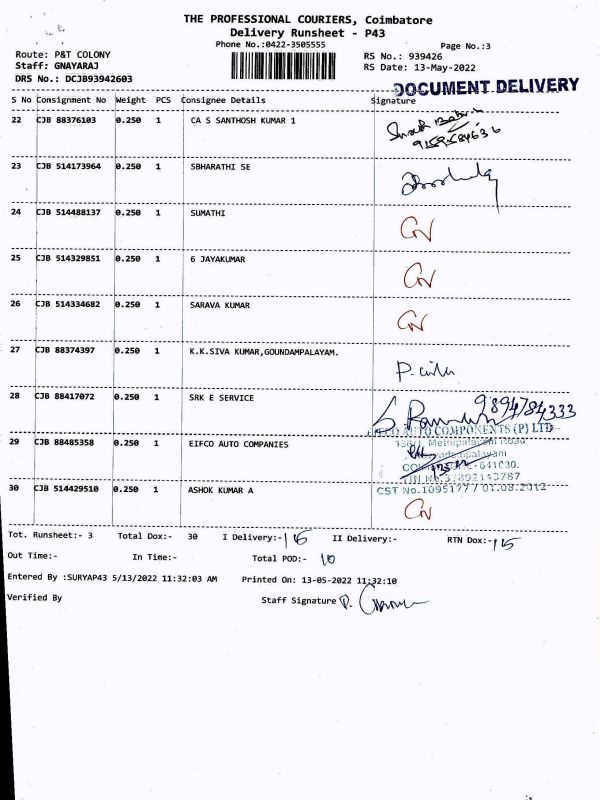 THE PROFESSIONAL COURIERS, Coimbatore
Delivery Runsheet - P43
Phone No.:0422-3505555
Page No.:3
Route: P&T COLONY
Staff: GNAYARAJ
DRS No.: DCJB93942603
RS No.: 939426
RS Date: 13-May-2022
DOCUMENT DELIVERY
S No Consignment No Weight PCS Consignee Details Signature
22 CJB 88376103 0.250 1 CA S SANTHOSH KUMAR 1
9159584636
23 CJB 514173964 0.250 1 SBHARATHI SE
24 CJB 514488137 0.250 1 SUMATHI
25 CJB 514329851 0.250 1 6 JAYAKUMAR
26 CJB 514334682 0.250 1 SARAVA KUMAR
27 CJB 88374397 0.250 1 K.K.SIVA KUMAR,GOUNDAMPALAYAM.
28 CJB 88417072 0.250 1 SRK E SERVICE
9894784333
AUTO COMPONENTS (P) LTD
29 CJB 88485358 0.250 1 EIFCO AUTO COMPANIES
Mettupalayam Road
CST No.1095177 / 01.08.2012
30 CJB 514429510 0.250 1 ASHOK KUMAR A
Tot. Runsheet:- 3 Total Dox:- 30 I Delivery:- 15 II Delivery:- RTN Dox:- 15
Out Time:- In Time:- Total POD:- 10
Entered By :SURYAP43 5/13/2022 11:32:03 AM Printed On: 13-05-2022 11:32:10
Verified By Staff Signature